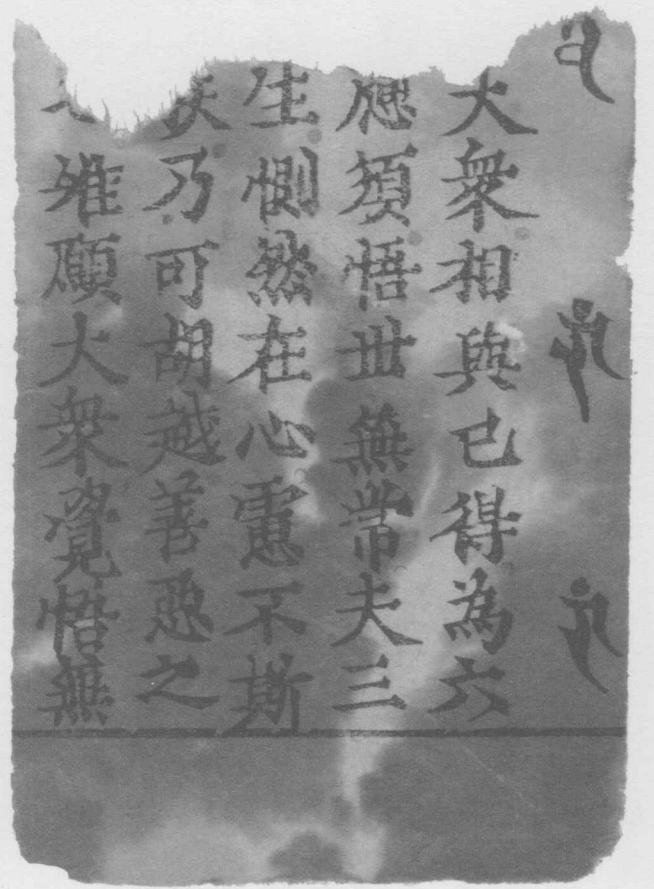 大衆相與已得為六
須悟丗無常夫三
生惻然在心慮不斯
乃可胡越善惡之
唯願大衆覺悟無